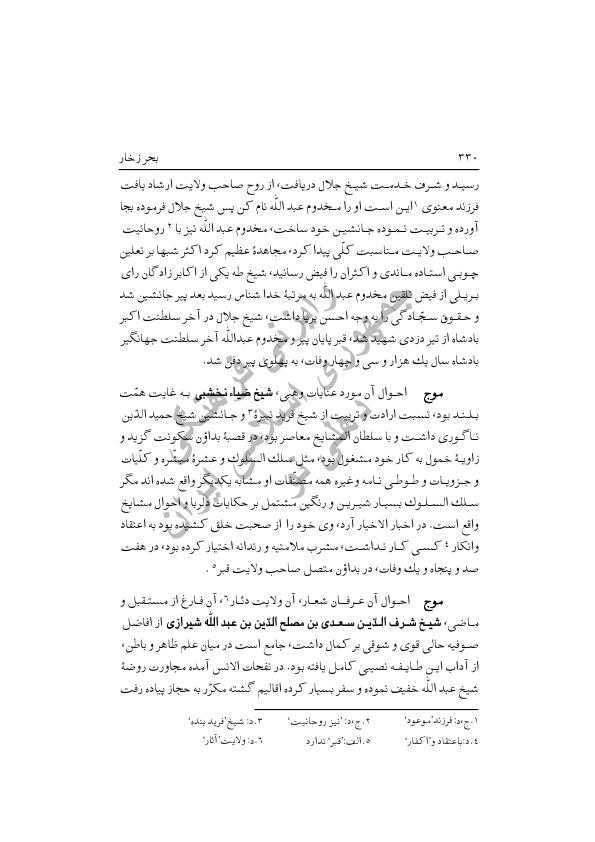 ۳۳۰
بحر زخار
رسید و شرف خدمت شیخ جلال دریافت، از روح صاحب ولایت ارشاد یافت
فرزند معنوی ۱ این است او را مخدوم عبد الله نام کن پس شیخ جلال فرموده بجا
آورده و تربیت نموده جانشین خود ساخت، مخدوم عبد الله نیز با ۲ روحانیت
صاحب ولایت مناسبت کلّی پیدا کرد، مجاهدهٔ عظیم کرد اکثر شبها بر نعلین
چوبی استاده ماندی و اکثران را فیض رسانید، شیخ طه یکی از اکابر زادگان رای
بریلی از فیض تلقین مخدوم عبد الله به مرتبهٔ خدا شناس رسید بعد پیر جانشین شد
و حقوق سجّادگی را به وجه احسن برپا داشت، شیخ جلال در آخر سلطنت اکبر
بادشاه از تیر دزدی شهید شد، قبر پایان پیر و مخدوم عبدالله آخر سلطنت جهانگیر
بادشاه سال یك هزار و سی و چهار وفات، به پهلوی پیر دفن شد.
موج احوال آن مورد عنایات وهبی، شیخ ضیاء نخشبی به غایت همّت
بلند بود، نسبت ارادت و تربیت از شیخ فرید نبیرهٔ ۳ و جانشین شیخ حمید الدّین
ناگوری داشت و با سلطان المشایخ معاصر بود، در قصبهٔ بداؤن سکونت گزید و
زاویهٔ خمول به کار خود مشغول بود، مثل سلك السلوك و عشرهٔ مبشّره و کلّیات
و جزویات و طوطی نامه وغیره همه مصنّفات او مشابه یکدیگر واقع شده اند مگر
سلك السلوك بسیار شیرین و رنگین مشتمل بر حکایات دلربا و احوال مشایخ
واقع است. در اخبار الاخیار آرد، وی خود را از صحبت خلق کشیده بود به اعتقاد
وانکار ۴ کسی کار نداشت، مشرب ملامتیه و رندانه اختیار کرده بود، در هفت
صد و پنجاه و یك وفات، در بداؤن متصل صاحب ولایت قبر ۵.
موج احوال آن عرفان شعار، آن ولایت دثار ۶، آن فارغ از مستقبل و
ماضی، شیخ شرف الدّین سعدی بن مصلح الدّین بن عبد الله شیرازی از افاضل
صوفیه حالی قوی و شوقی بر کمال داشت، جامع است در میان علم ظاهر و باطن،
از آداب این طایفه نصیبی کامل یافته بود. در نفحات الانس آمده مجاورت روضهٔ
شیخ عبد الله خفیف نموده و سفر بسیار کرده اقالیم گشته مکرّر به حجاز پیاده رفت
۱.ج،د: فرزند'موعود' ۲.ج،د: 'نیز روحانیت' ۳.د: شیخ'فرید بنده'
۴.د:باعتقاد و'اکفار' ۵.الف:'قبر' ندارد ۶.د: ولایت'آثار'
رایزنی فرهنگی
جمهوری اسلامی ایران
دهلی نو